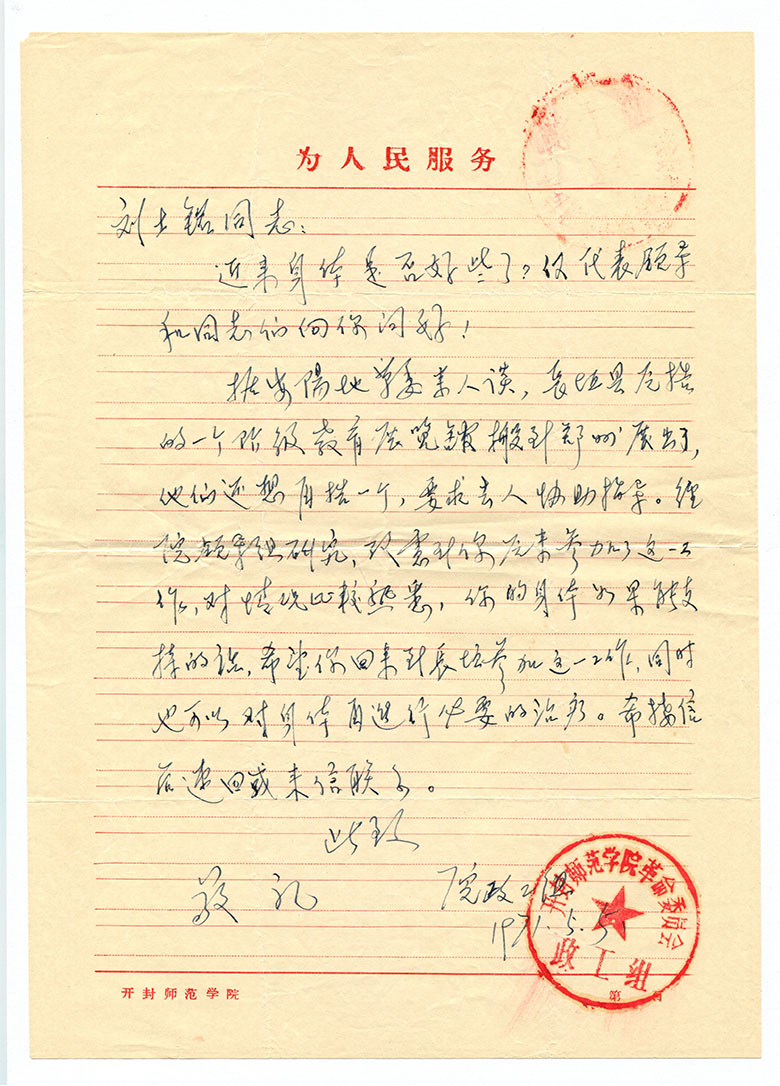 为人民服务
刘士铭同志：
近来身体是否好些了？仅代表领导
和同志们向你问好！
据安阳地革委来人谈，长垣县原搞
的一个阶级教育展览馆搬到郑州展出了，
他们还想再搞一个，要求去人协助指导。经
院领导组研究，考虑到你原来参加了这一工
作，对情况比较熟悉，你的身体如果能支
持的话，希望你回来到长垣参加这一工作，同时
也可以对身体再进行必要的治疗。希接信
后速回或来信联系。
此致
敬礼
院政工组
1971.5.5.
开封师范学院革命委员会
政工组
开封师范学院
第 页